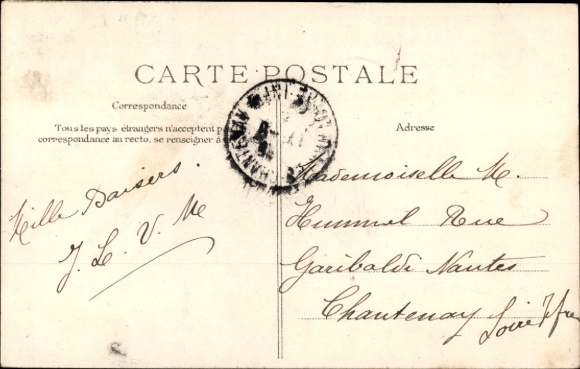 CARTE POSTALE
Correspondance
Tous les pays étrangers n'acceptent
correspondance au recto, se renseigner à
Adresse
Mille Baisers.
J. L. V. M
Mademoiselle M.
Hummel Rue
Garibaldi Nantes
Chantenay
Loire Infre
CHANTENAY